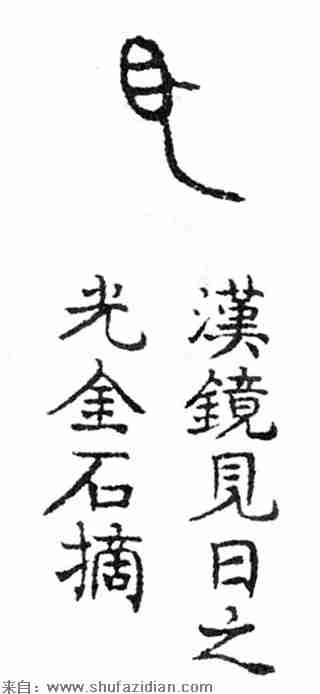 漢鏡見日之
光金石摘
来自：www.shufazidian.com